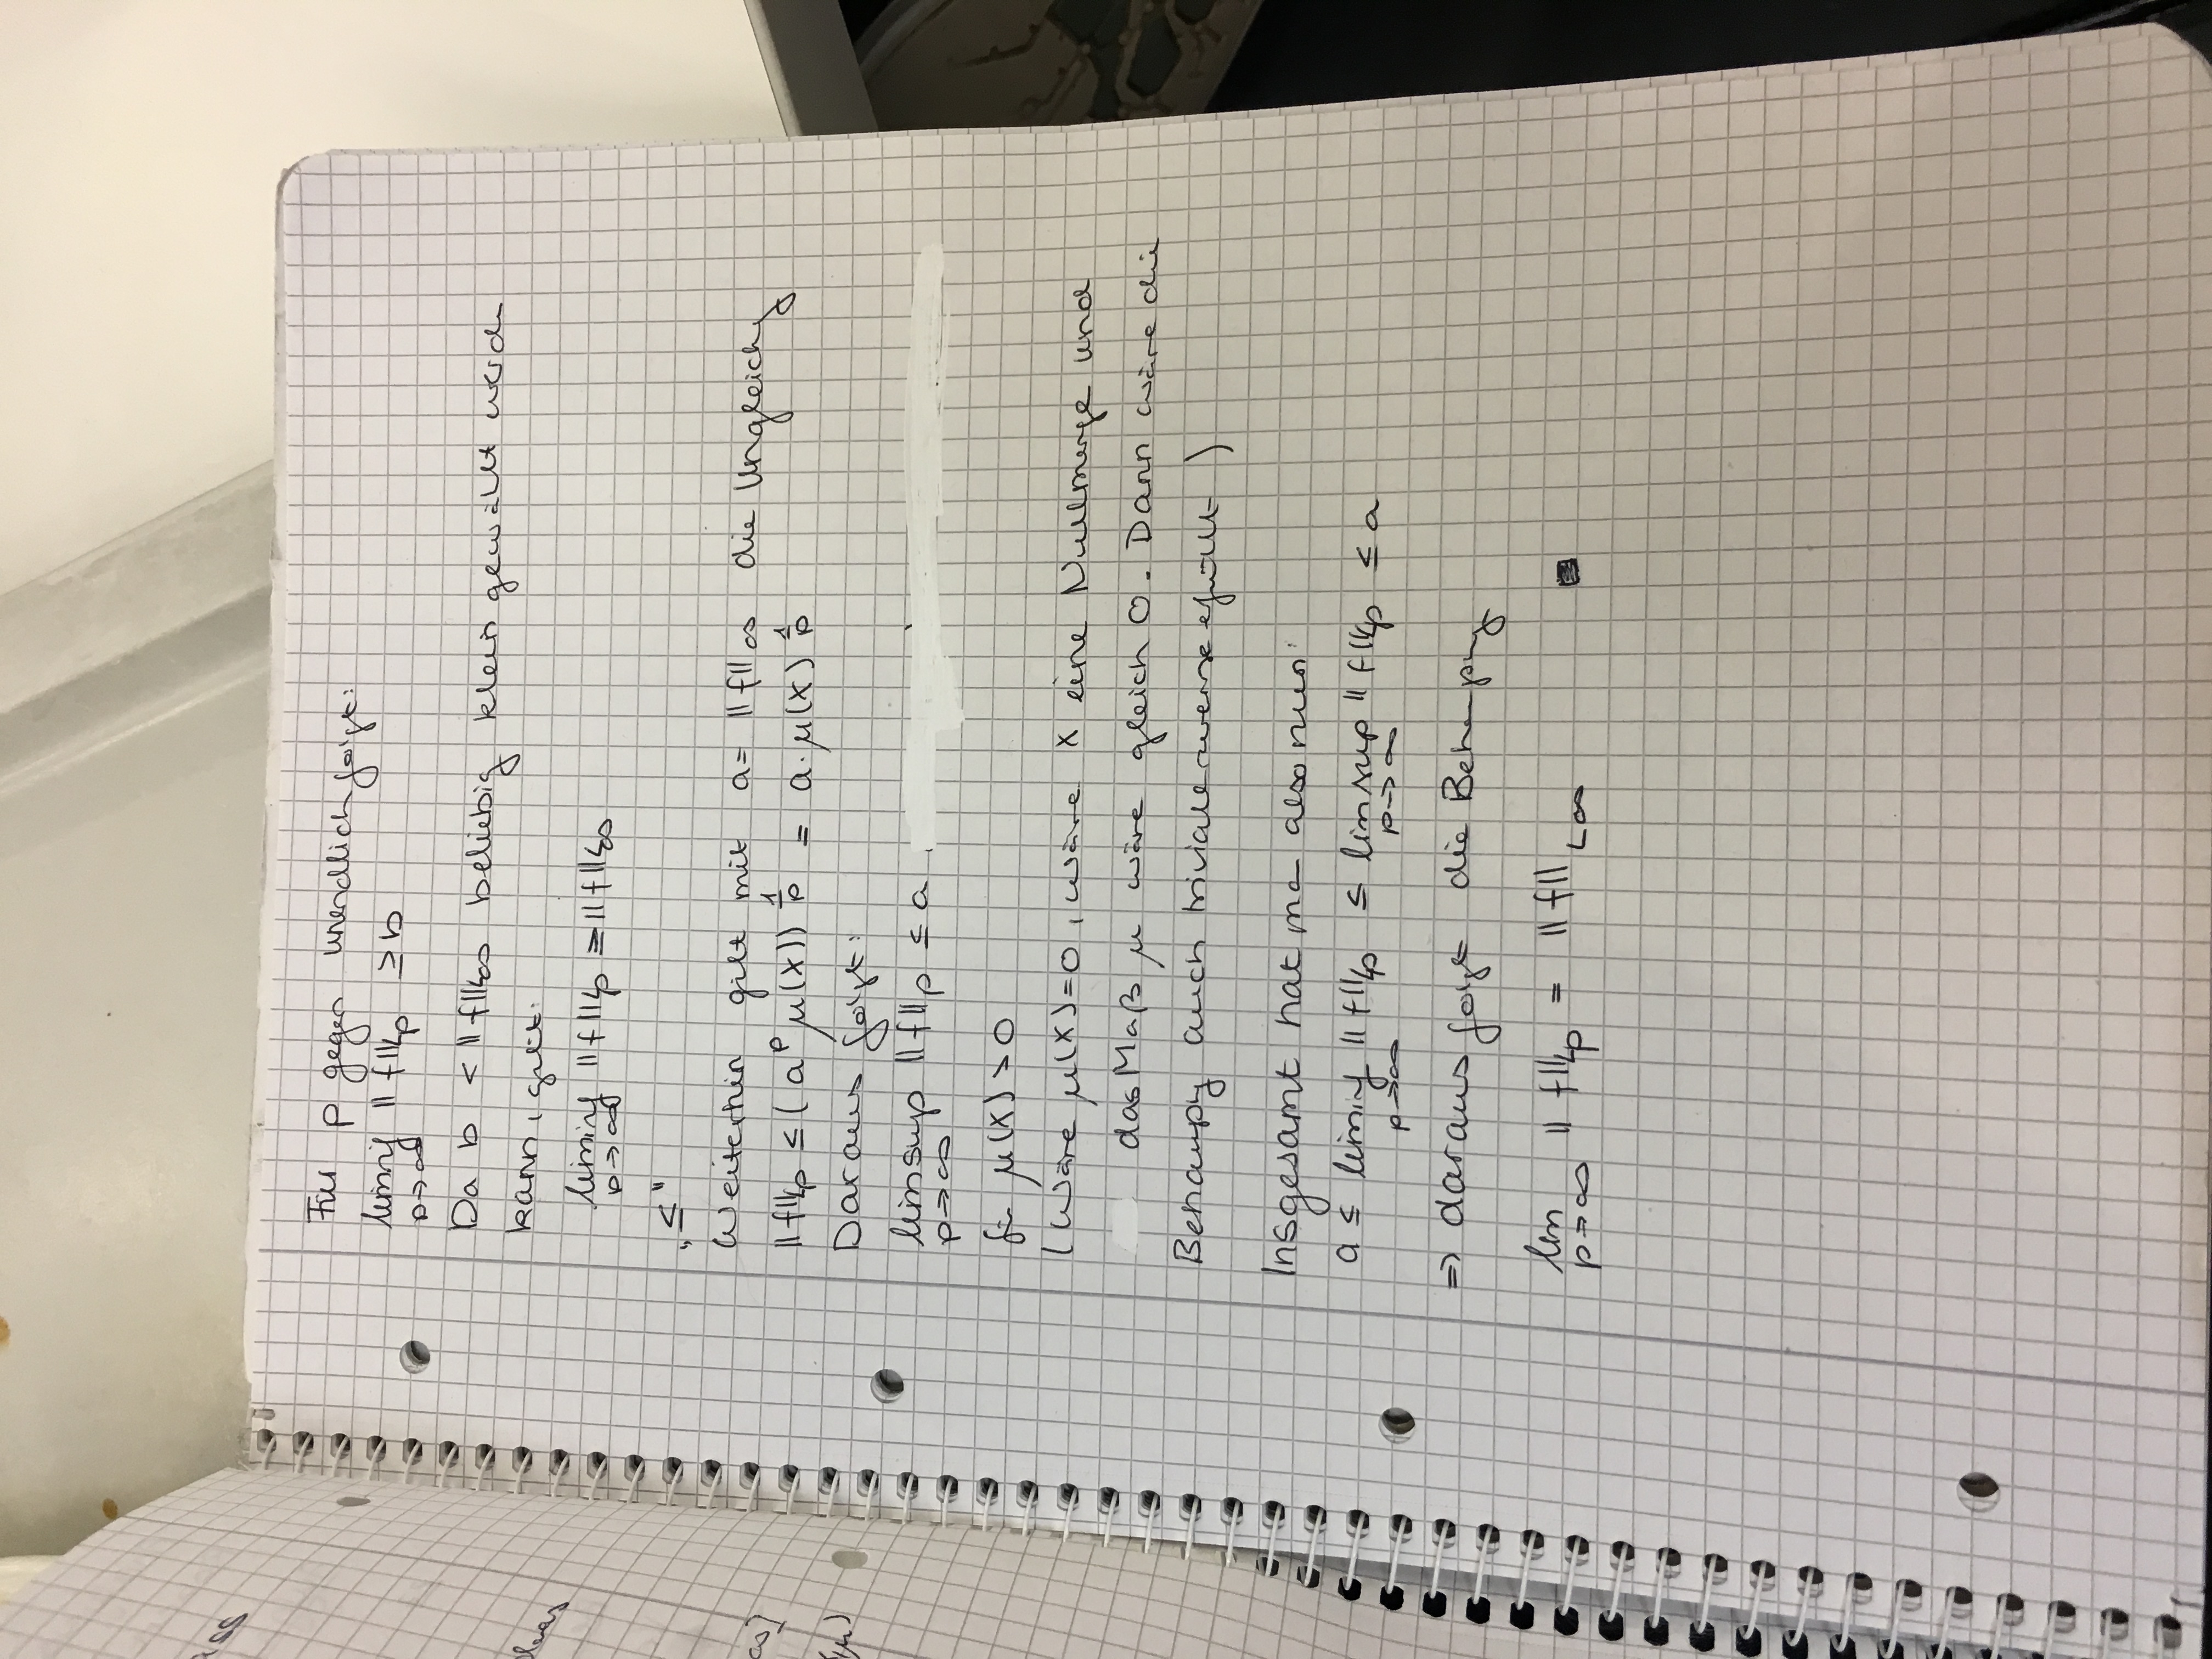 Für p gegen unendlich folgt:
liminf ‖f‖Lp ≥ b
p→∞
Da b < ‖f‖L∞ beliebig klein gewählt werden
kann, gilt:
liminf ‖f‖Lp ≥ ‖f‖L∞
p→∞
"≤"
Weiterhin gilt mit a = ‖f‖∞ die Ungleichung
‖f‖Lp ≤ (a^p μ(X))^(1/p) = a · μ(X)^(1/p)
Daraus folgt:
limsup ‖f‖p ≤ a
p→∞
für μ(X) > 0
(Wäre μ(X) = 0, wäre X eine Nullmenge und
das Maß μ wäre gleich 0. Dann wäre die
Behauptung auch trivialerweise erfüllt)
Insgesamt hat man also nun:
a ≤ liminf ‖f‖Lp ≤ limsup ‖f‖Lp ≤ a
p→∞ p→∞
⇒ daraus folgt die Behauptung
lim ‖f‖Lp = ‖f‖L∞
p→∞